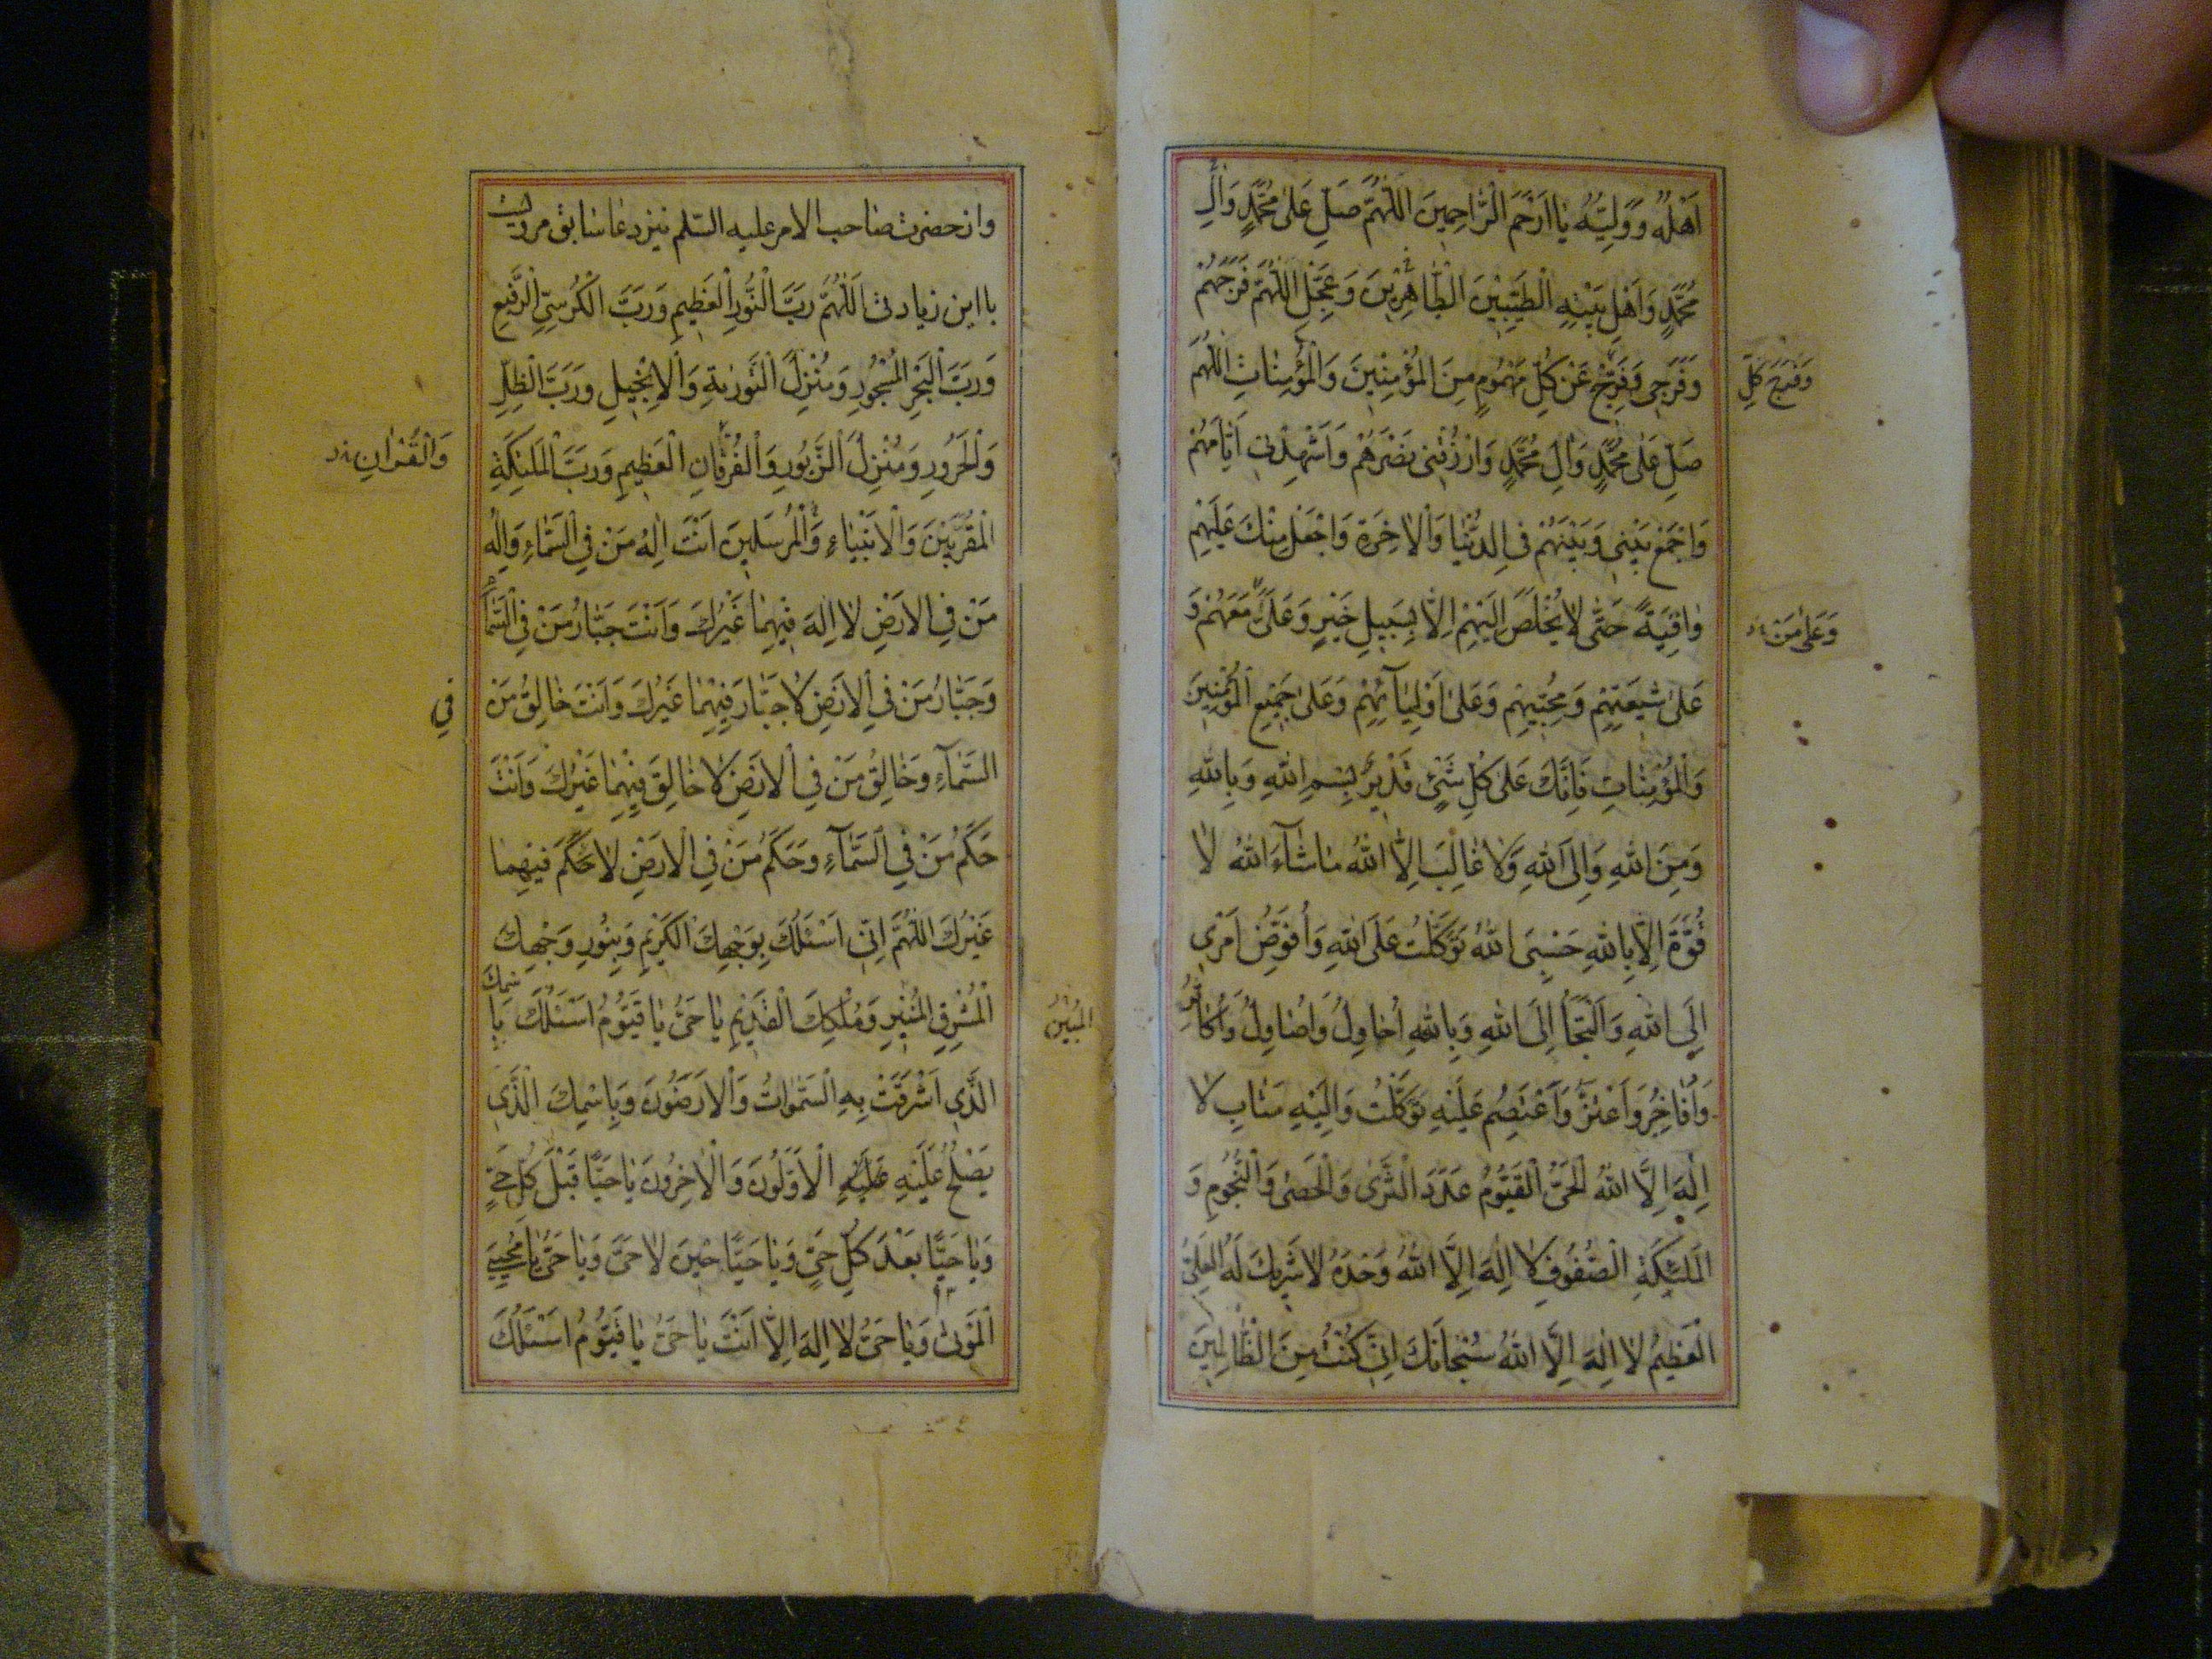 اَهْلُهُ وَ وَلِيُّهُ يٰا اَرْحَمَ الرّٰاحِمِينَ اَللّٰهُمَّ صَلِّ عَلىٰ مُحَمَّدٍ وَآلِ
مُحَمَّدٍ وَاَهْلِ بَيْتِهِ الْطَيِّبِيْنَ الْطّٰاهِرِيْنَ وَعَجِّلِ اللّٰهُمَّ فَرَجَهُمْ
وَفَرَجِي وَفَرِّجْ عَنْ كُلِّ مَهْمُومٍ مِنَ الْمُؤْمِنِيْنَ وَالْمُؤْمِنٰاتِ اللّٰهُمَّ
وَفَرَجَ كُلِّ
صَلِّ عَلىٰ مُحَمَّدٍ وَآلِ مُحَمَّدٍ وَارْزُقْنِي نَصْرَهُمْ وَاَشْهِدْنِي اَيّٰامَهُمْ
وَاجْمَعْ بَيْنِي وَبَيْنَهُمْ فِي الدُّنْيٰا وَالْاٰخِرَةِ وَاجْعَلْ مِنْكَ عَلَيْهِمْ
وٰاقِيَةً حَتّٰى لاٰ يُخْلَصَ اِلَيْهِمْ اِلّاٰ بِسَبِيلِ خَيْرٍ وَعَلَيَّ مَعَهُمْ وَ
وَعَلىٰ مَنْ
عَلىٰ شِيْعَتِهِمْ وَمُحِبِّيهِمْ وَعَلىٰ اَوْلِيٰآئِهِمْ وَعَلىٰ جَمِيْعِ الْمُؤْمِنِينَ
وَالْمُؤْمِنٰاتِ فَاِنَّكَ عَلىٰ كُلِّ شَيْءٍ قَدِيْرٌ بِسْمِ اللّٰهِ وَبِاللّٰهِ
وَمِنَ اللّٰهِ وَاِلَى اللّٰهِ وَلاٰ غٰالِبَ اِلَّا اللّٰهُ مٰاشٰآءَ اللّٰهُ لاٰ
قُوَّةَ اِلّاٰ بِاللّٰهِ حَسْبِيَ اللّٰهُ تَوَكَّلْتُ عَلَى اللّٰهِ وَاُفَوِّضُ اَمْرِي
اِلَى اللّٰهِ وَاَلْتَجَأُ اِلَى اللّٰهِ وَبِاللّٰهِ اُحٰاوِلُ وَاُصٰاوِلُ وَاُكٰاثِرُ
وَاُفٰاخِرُ وَاَعْتَزُّ وَاَعْتَصِمُ عَلَيْهِ تَوَكَّلْتُ وَاِلَيْهِ مَتٰابِ لاٰ
اِلٰهَ اِلَّا اللّٰهُ الْحَيُّ الْقَيُّوْمُ عَدَدَ الثَّرىٰ وَالْحَصىٰ وَالنُّجُومِ وَ
الْمَلٰئِكَةِ الْصُّفُوفِ لاٰ اِلٰهَ اِلَّا اللّٰهُ وَحْدَهُ لاٰ شَرِيْكَ لَهُ الْعَلِيُّ
الْعَظِيْمُ لاٰ اِلٰهَ اِلَّا اللّٰهُ سُبْحٰانَكَ اِنِّي كُنْتُ مِنَ الْظّٰالِمِيْنَ
وازحضرت صٰاحب الامر عليه السّلم نيز دعٰا سٰابق مرويست
با اين زيادتى اَللّٰهُمَّ رَبَّ الْنُّورِ الْعَظِيمِ وَرَبَّ الْكُرْسِيِّ الْرَّفِيْعِ
وَرَبَّ الْبَحْرِ الْمَسْجُورِ وَمُنْزِلَ الْتَّوْرٰيةِ وَالْاِنْجِيلِ وَرَبَّ الْظِلِّ
وَالْحَرُورِ وَمُنْزِلَ الْزَّبُورِ وَالْفُرْقٰانِ الْعَظِيمِ وَرَبَّ الْمَلٰئِكَةِ
وَالْقُرْاٰنِ
الْمُقَرَّبِيْنَ وَالْاَنْبِيٰاءِ وَالْمُرْسَلِينَ اَنْتَ اِلٰهُ مَنْ فِي السَّمٰاءِ وَاِلٰهُ
مَنْ فِي الْاَرْضِ لاٰ اِلٰهَ فِيْهِمٰا غَيْرُكَ وَاَنْتَ جَبّٰارُ مَنْ فِي السَّمٰاءِ
وَجَبّٰارُ مَنْ فِي الْاَرْضِ لاٰ جَبّٰارَ فِيْهِمٰا غَيْرُكَ وَاَنْتَ خٰالِقُ مَنْ
فِي
السَّمٰآءِ وَخٰالِقُ مَنْ فِي الْاَرْضِ لاٰ خٰالِقَ فِيْهِمٰا غَيْرُكَ وَاَنْتَ
حَكَمُ مَنْ فِي السَّمٰآءِ وَحَكَمُ مَنْ فِي الْاَرْضِ لاٰ حَكَمَ فِيْهِمٰا
غَيْرُكَ اللّٰهُمَّ اِنِّي اَسْئَلُكَ بِوَجْهِكَ الْكَرِيْمِ وَبِنُورِ وَجْهِكَ
الْمُشْرِقِ الْمُنِيْرِ وَمُلْكِكَ الْقَدِيْمِ يٰا حَيُّ يٰا قَيُّوْمُ اَسْئَلُكَ بِاسْمِكَ
الَّذِي اَشْرَقَتْ بِهِ الْسَّمٰوٰاتُ وَالْاَرَضُونَ وَبِاسْمِكَ الَّذِي
يَصْلَحُ عَلَيْهِ عَلَيْهِ الْاَوَّلُونَ وَالْاٰخِرُونَ يٰا حَيّاً قَبْلَ كُلِّ حَيٍّ
وَيٰا حَيّاً بَعْدَ كُلِّ حَيٍّ وَيٰا حَيّاً حِيْنَ لاٰ حَيَّ وَيٰا حَيُّ يٰا مُحْيِيَ
الْمَوْتىٰ وَيٰا حَيُّ لاٰ اِلٰهَ اِلّاٰ اَنْتَ يٰا حَيُّ يٰا قَيُّوْمُ اَسْئَلُكَ